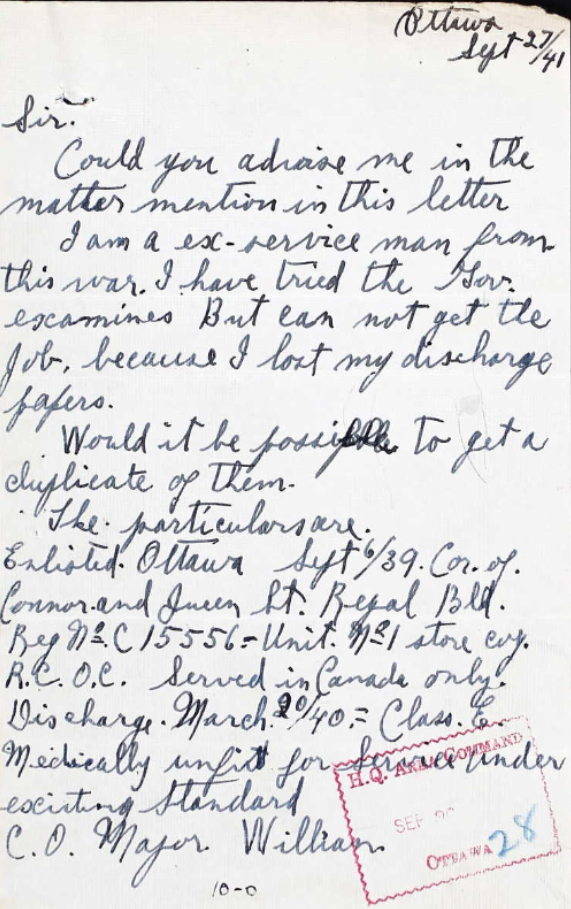 Ottawa
Sept 27/41
Sir.
Could you advise me in the
matter mention in this letter
I am a ex-service man from
this war. I have tried the Gov.
examines But can not get the
Job, because I lost my discharge
papers.
Would it be possible to get a
duplicate of them.
The particulars are.
Enlisted. Ottawa Sept 6/39. Cor. of.
Connor and Queen St. Regal Bld.
Reg No. C 15556 - Unit. No 1 store coy.
R.C.O.C. Served in Canada only.
Discharge. March. 20/40. = Class. E.
Medically unfit for Service under
existing Standard
C.O. Major William
H.Q. AREA COMMAND
SEP
28
OTTAWA
10-0